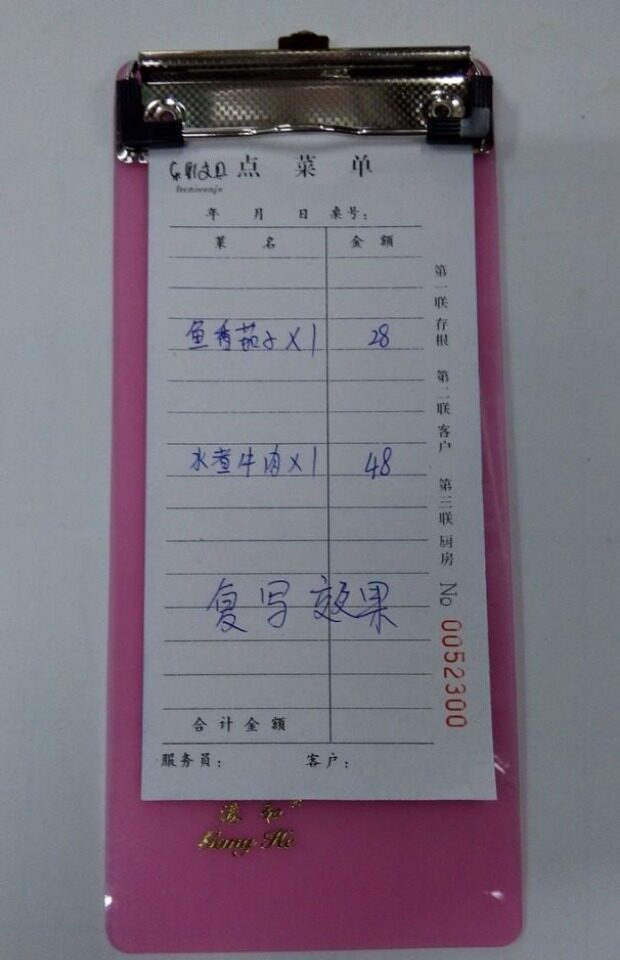 点菜单
年 月 日 桌号：
菜 名 金 额
鱼香茄子×1 28
水煮牛肉×1 48
复写效果
合计金额
服务员： 客户：
第一联存根 第二联客户 第三联厨房 No 0052300
Gang He